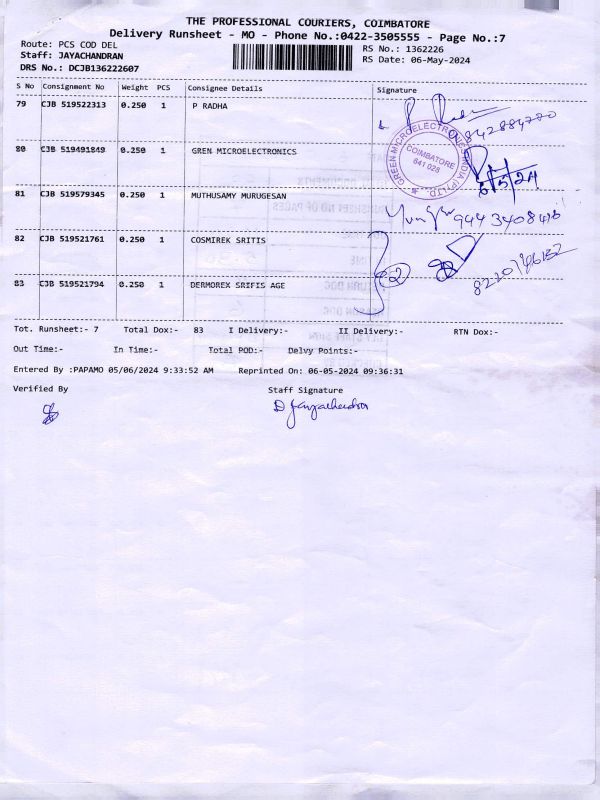 THE PROFESSIONAL COURIERS, COIMBATORE
Delivery Runsheet - MO - Phone No.:0422-3505555 - Page No.:7
Route: PCS COD DEL
RS No.: 1362226
Staff: JAYACHANDRAN
RS Date: 06-May-2024
DRS No.: DCJB136222607
S No Consignment No Weight PCS Consignee Details Signature
79 CJB 519522313 0.250 1 P RADHA
80 CJB 519491849 0.250 1 GREN MICROELECTRONICS
GREEN MICROELECTRONICS INDIA (P) LTD
COIMBATORE
641 028
6/5/24
81 CJB 519579345 0.250 1 MUTHUSAMY MURUGESAN
82 CJB 519521761 0.250 1 COSMIREK SRITIS
2
83 CJB 519521794 0.250 1 DERMOREX SRIFIS AGE
Tot. Runsheet:- 7 Total Dox:- 83 I Delivery:- II Delivery:- RTN Dox:-
Out Time:- In Time:- Total POD:- Delvy Points:-
Entered By :PAPAMO 05/06/2024 9:33:52 AM Reprinted On: 06-05-2024 09:36:31
Verified By Staff Signature
D Jayachandran